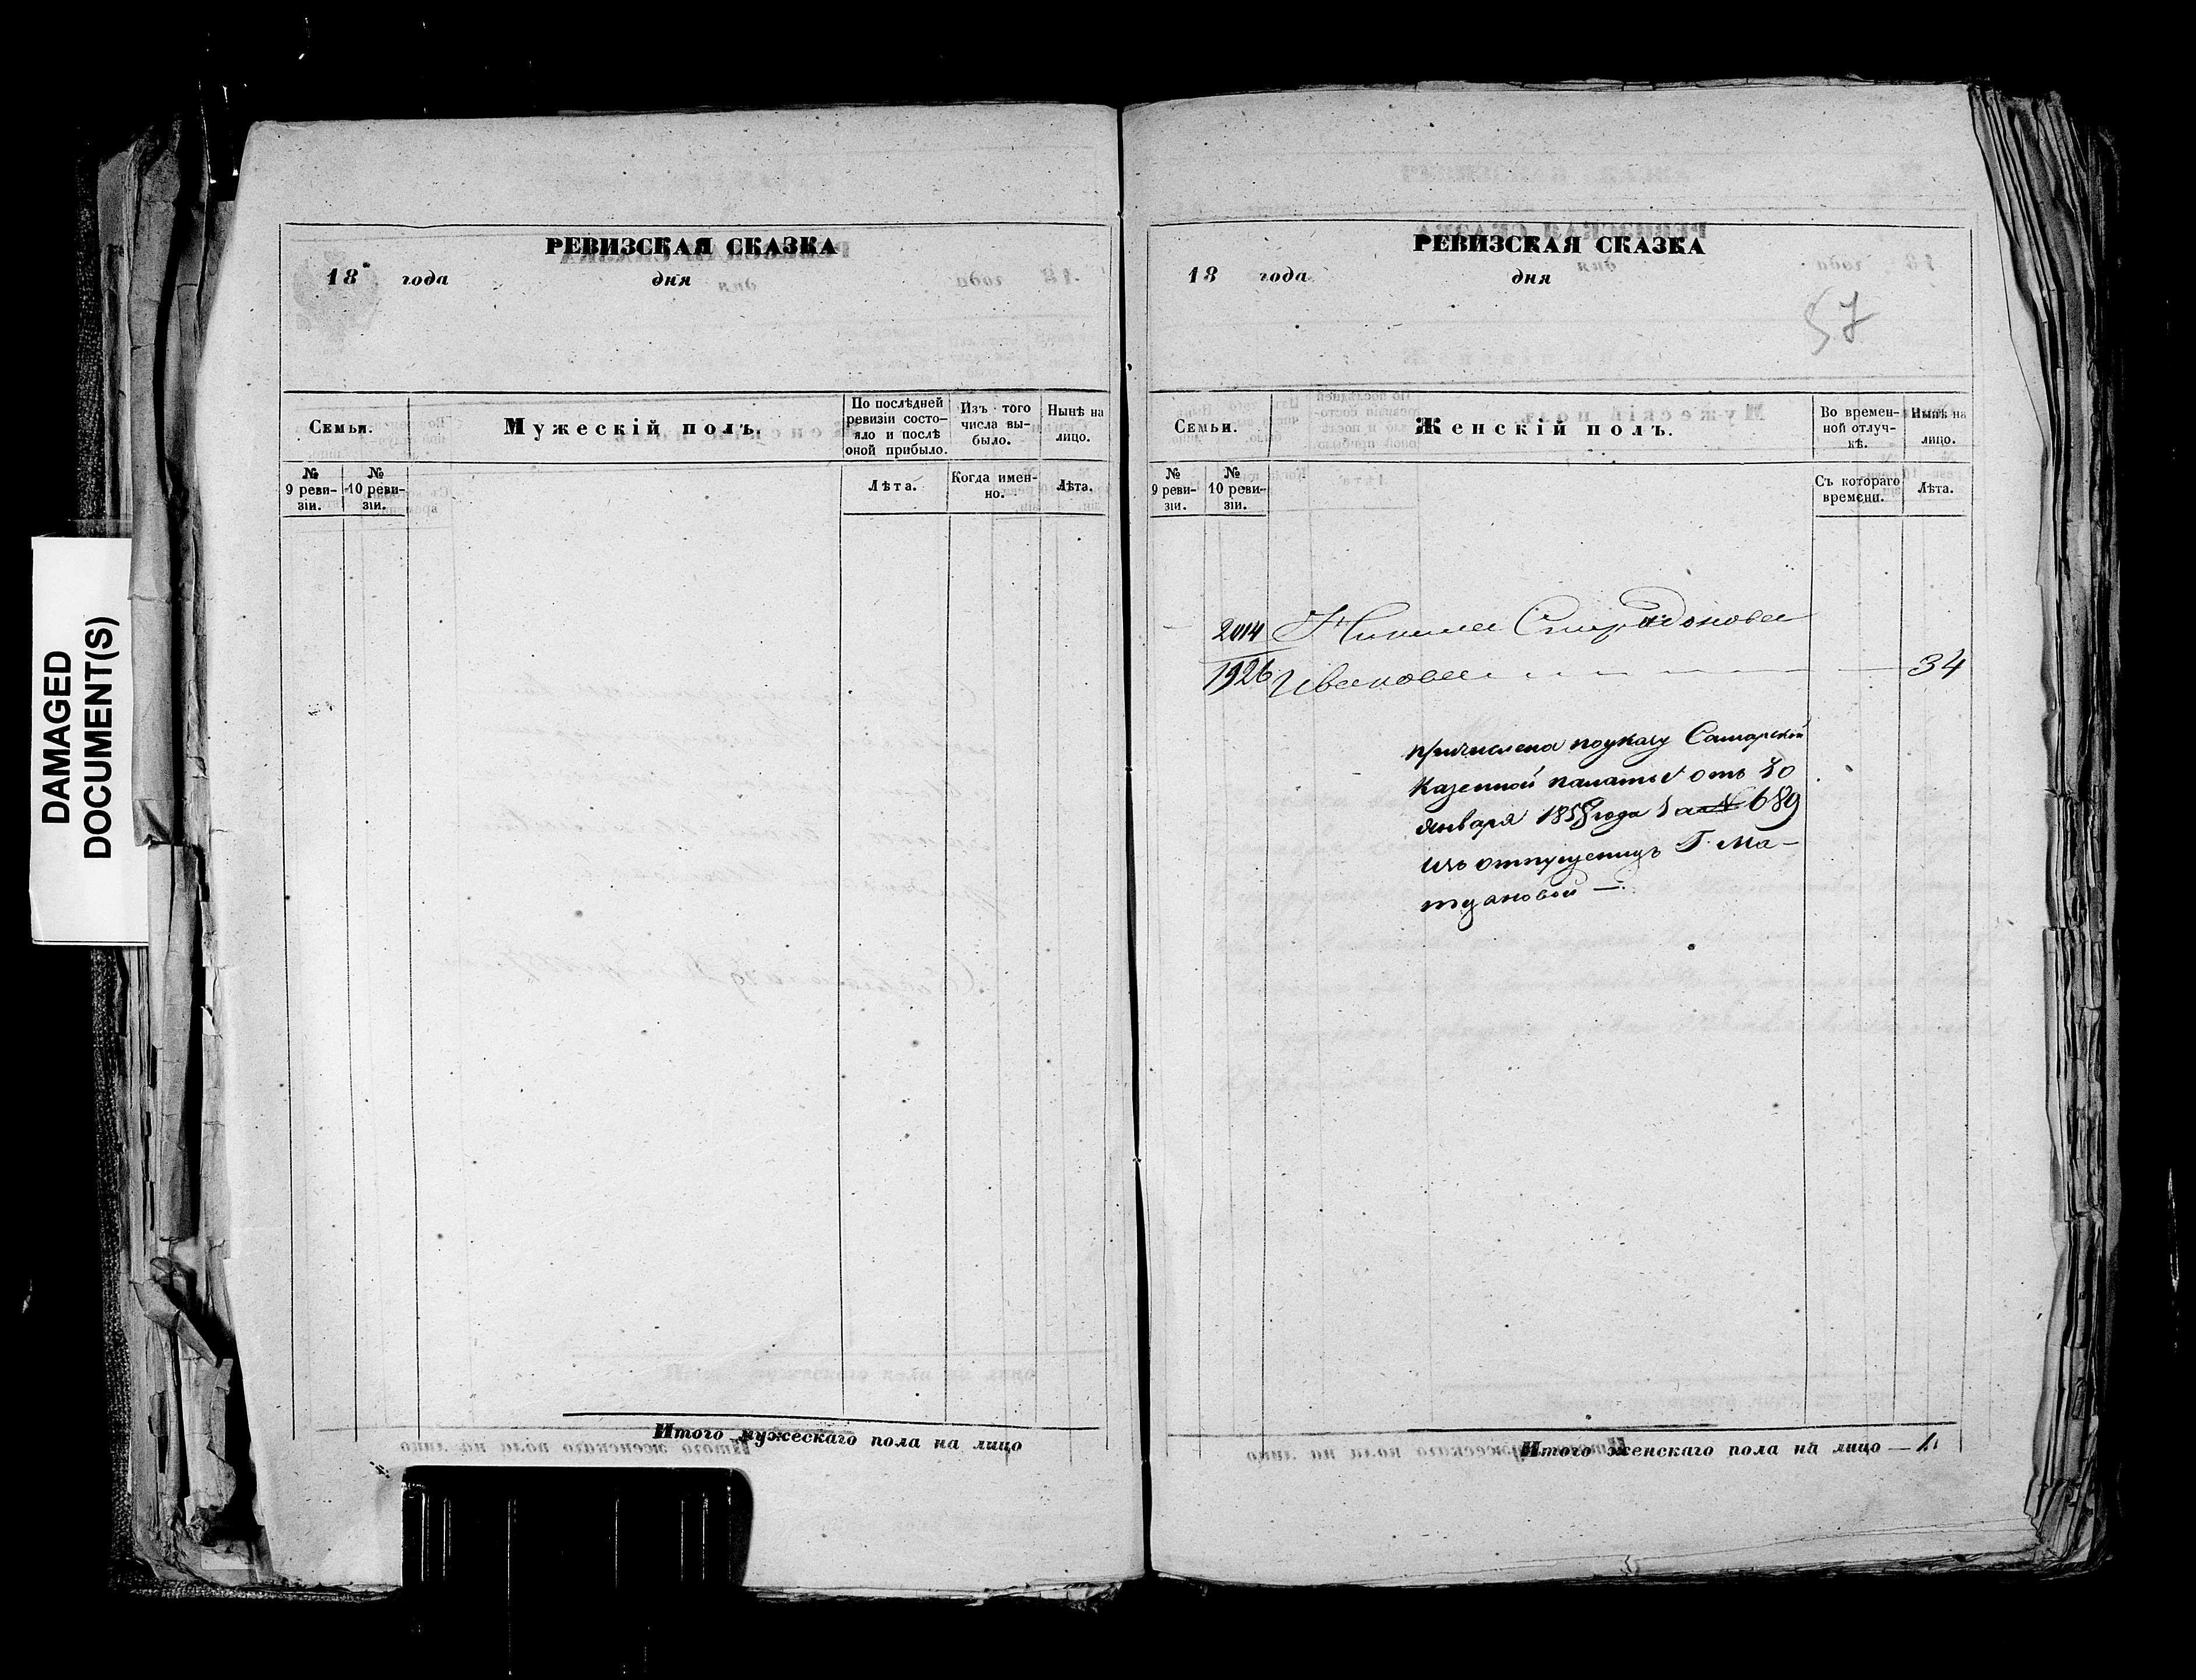 DAMAGED
DOCUMENT(S)
РЕВИЗСКАЯ СКАЗКА
18 года дня
Семьи.
Мужескій полъ.
По послѣдней
ревизіи состо-
яло и послѣ
оной прибыло.
Изъ того
числа вы-
было.
Нынѣ на
лицо.
№
9 реви-
зіи.
№
10 реви-
зіи.
Лѣта.
Когда имен-
но.
Лѣта.
Итого мужескаго пола на лицо
РЕВИЗСКАЯ СКАЗКА
18 года дня
57
Семьи.
Женскій полъ.
Во времен-
ной отлуч-
кѣ.
Нынѣ на
лицо.
№
9 реви-
зіи.
№
10 реви-
зіи.
Съ котораго
времени.
Лѣта.
2014
1926 Иванова 34
причислена по указу Самарской
Казенной палаты отъ
января года за № 689
изъ отпущеницъ Г. Ма-
Итого женскаго пола на лицо — 1.